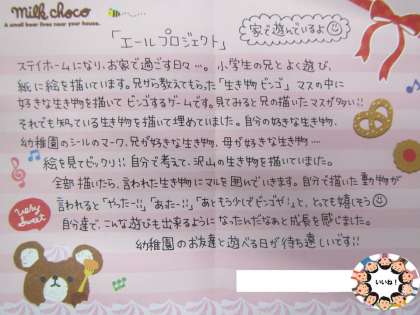 milk choco
A small bear lives near your house.
家で遊んでいるよ
「エールプロジェクト」
ステイホームになり、お家で過ごす日々…。小学生の兄とよく遊び、
紙に絵を描いています。兄から教えてもらった「生き物ビンゴ」マスの中に
好きな生き物を描いてビンゴするゲームです。見てみると兄の描いたマスが多い!!
それでも知っている生き物を描いて埋めていました。自分の好きな生き物、
幼稚園のシールのマーク、兄が好きな生き物、母が好きな生き物…
絵を見てビックリ!!自分で考えて、沢山の生き物を描いていました。
全部描いたら、言われた生き物にマルを囲んでいきます。自分で描いた動物が
言われると「やったー!!」「あたー!!」「あともう少しでビンゴだ!」と、とても嬉しそう
自分達で、こんな遊びも出来るようになったんだなぁと成長を感じました。
幼稚園のお友達と遊べる日が待ち遠しいです!!
Very Sweet
いいね!